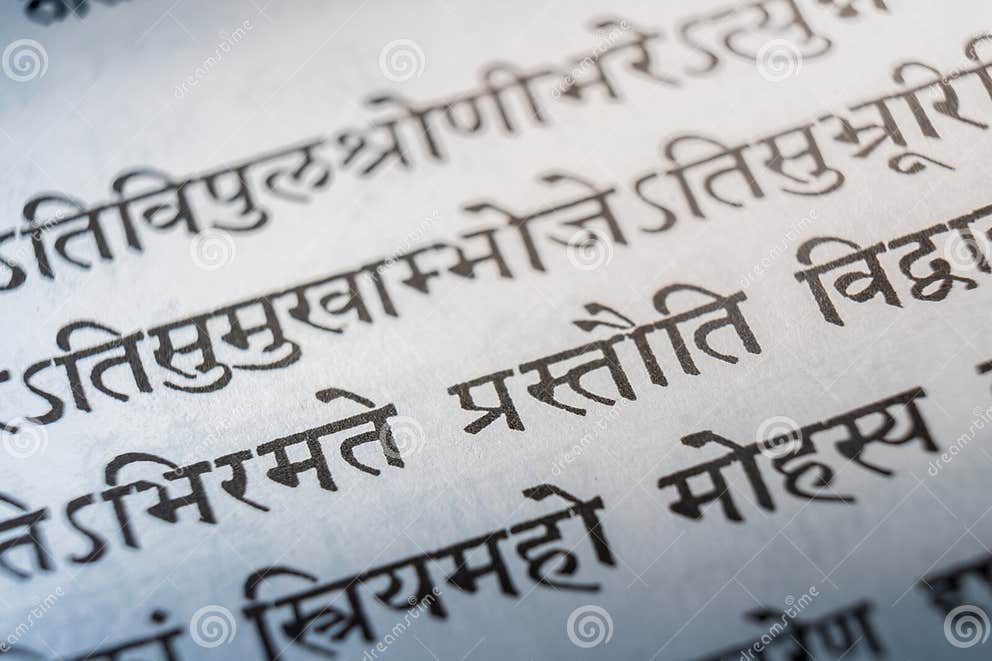 ऽतिविपुलश्रोणीभरेऽत्यु
ऽतिसुमुखाम्भोजेऽतिसुभ्रूरि
तेऽभिरमते प्रस्तौति विद्वा
स्त्रियमहो मोहस्य